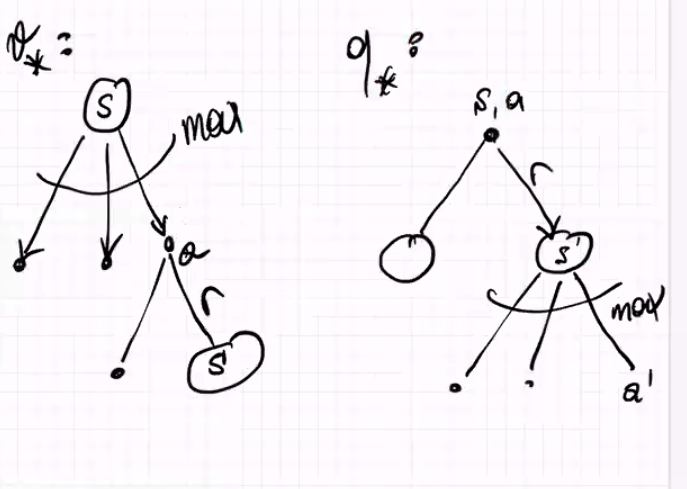 v*:
S
max
a
r
s'
q*:
s, a
r
s'
max
a'